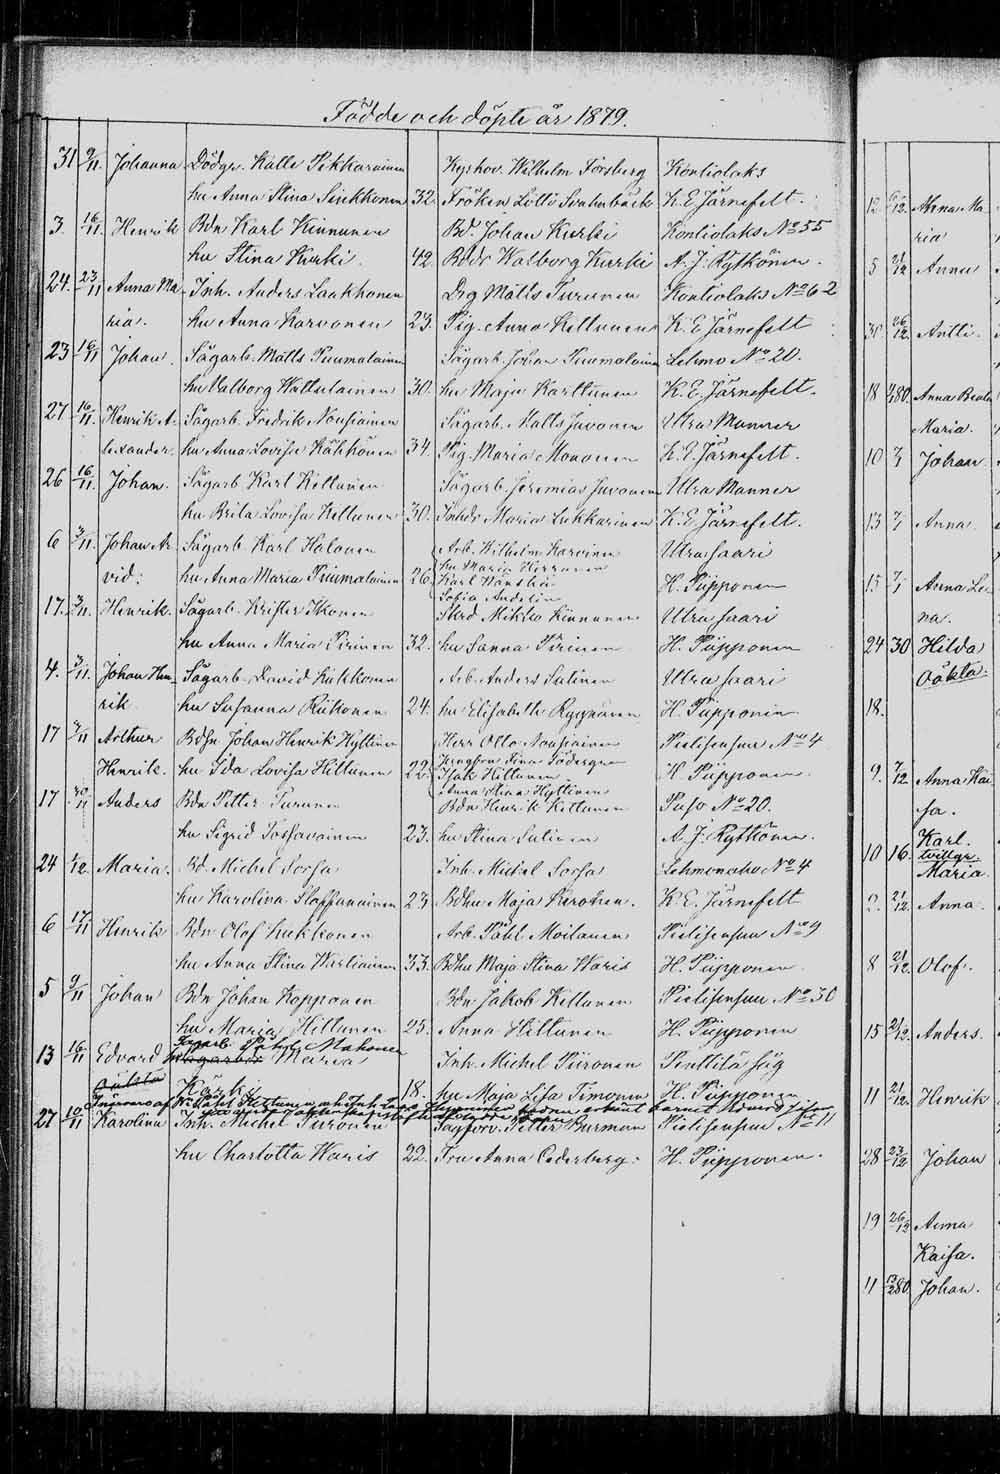 Födde och döpte år 1879.
31 9/11. Johanna Dödgr. Kalle Pekkarainen Kyrkov. Wilhelm Forsberg Kontiolaks
hu Anna Stina Sinkkonen 32. Fröken Lotti K. E. Järnefelt.
3. 16/11. Henrik Bdn Karl Kinnunen Bd. Johan Kurki Kontiolaks No 55
hu Stina Kurki. 42. Bddr Walborg Kurki A. J. Rytkönen.
24. 23/11 Anna Ma- Inh. Anders Laakkonen Drg Matts Turunen Kontiolaks No 62
ria. hu Anna Karvonen 23. Pig. Anna Kettunen K. E Järnefelt
23 16/11 Johan. Sågarb. Matts Puumalainen Sågarb. Johan Puumalainen Lehmo No 20.
hu Valborg Wattulainen 30. hu Maja Karttunen K. E. Järnefelt.
27 16/11. Henrik A- Sågarb. Fredrik Nousiainen Sågarb. Matts Juvonen Utra Manner
lexander. hu Anna Lovisa Kähkönen 34. Pig. Maria Mononen K. E. Järnefelt.
26 16/11. Johan. Sågarb Karl Kettunen Sågarb. Jeremias Juvonen Utra Manner
hu Brita Lovisa Kettunen 30. Inhdr Maria Lukkarinen K. E Järnefelt.
6 3/11. Johan Ar- Sågarb. Karl Halonen Arb. Wilhelm Karvinen Utra Saari
hu Maria Hirvonen
vid. hu Anna Maria Puumalainen 26. Karl H. Piipponen
Sofia Andelin
17. 3/11. Henrik. Sågarb. Krister Ikonen Skrd Mikko Kinnunen Utra Saari
hu Anna Maria Pirinen 32. hu Sanna Pirinen H. Piipponen
4. 3/11. Johan Hen- Sågarb. David Kukkonen Arb. Anders Salinen Utra Saari
rik hu Susanna Riikonen 24. hu Elisabeth H. Piipponen
17 3/11 Arthur Bdsn Johan Henrik Hyttinen Herr Otto Nousiainen Pielisensuu No 4
Henrik. hu Ida Lovisa Hiltunen 22. Jungfrun Fina Södergren
Isak Hiltunen H. Piipponen
Anna Stina Hyttinen
17 30/11 Anders Bdn Petter Turunen Bdn Henrik Kettunen Puso No 20.
hu Sigrid Tossavainen 23. hu Stina A. J. Rytkönen.
24 1/12. Maria. Bd. Michel Sorsa Inh. Michel Sorsa Lehmonaho No 4
hu Karolina Staffanainen 23 Bdhu Maja K. E. Järnefelt
6 17/11 Henrik Bdn Olof Lukkonen Arb. Påhl Moilanen Pielisensuu No 9
hu Anna Stina Wartiainen 33. Bdhu Maja Stina Waris H. Piipponen
5 9/11 Johan Bdn Johan Kopponen Bdn Jakob Kettunen Pielisensuu No 30
hu Maria Hiltunen 25. Anna Hiltunen H. Piipponen
Sågarb. Påhl Mahonen
13 16/11 Edvard Maria Inh. Michel Piironen Penttilä såg
oäkta Kärki 18. hu Maja Lisa Timonen H. Piipponen
27 10/11 Karolina Inh. Michel Turonen Sågförv. Petter Burman Pielisensuu No 11
hu Charlotta Waris 22. Fru Anna Cederberg. H. Piipponen.
12 6/12. Anna Ma
ria
5 21/12 Anna
31 26/12. Antti.
18 1/1 80. Anna Beata
Maria.
10 7/1 Johan
13 7/1 Anna
15 7/1 Anna Le
na.
24 30 Hilda
Oäkta.
18.
9. 7/12 Anna Kai
sa.
10 16. Karl.
tvillgr.
Maria
2. 21/12. Anna.
8 21/12. Olof.
15 21/12. Anders.
11 21/12. Henrik
28 23/12 Johan
19 26/12 Anna
Kaisa.
11 13/2 80. Johan.